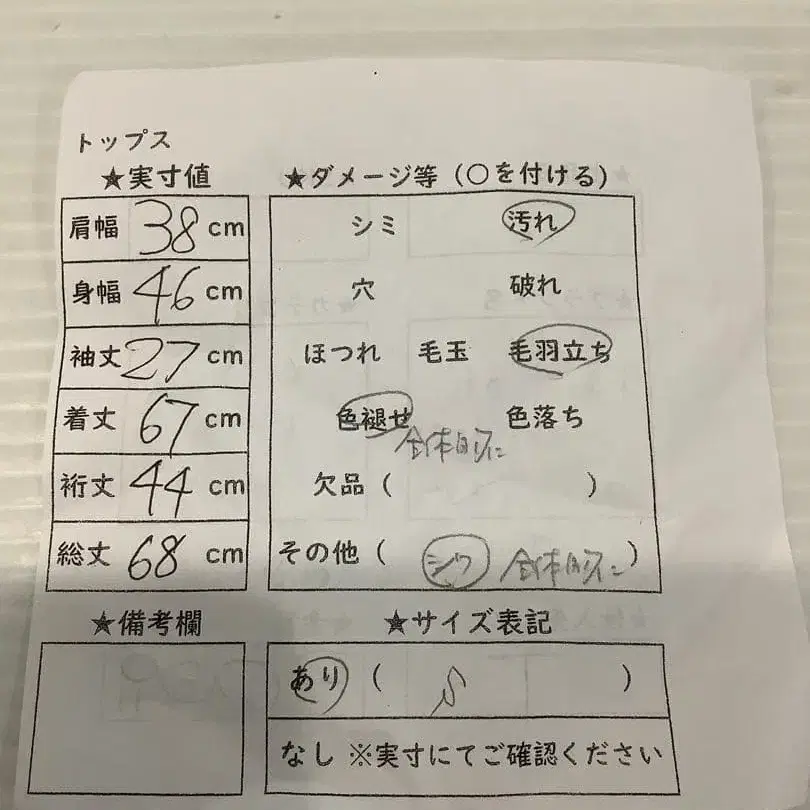 トップス
★実寸値
肩幅 38 cm
身幅 46 cm
袖丈 27 cm
着丈 67 cm
裄丈 44 cm
総丈 68 cm
★ダメージ等（○を付ける）
シミ 汚れ
穴 破れ
ほつれ 毛玉 毛羽立ち
色褪せ 色落ち
全体的に
欠品（ ）
その他（ シワ 全体的に ）
★備考欄
★サイズ表記
あり（ S ）
なし ※実寸にてご確認ください